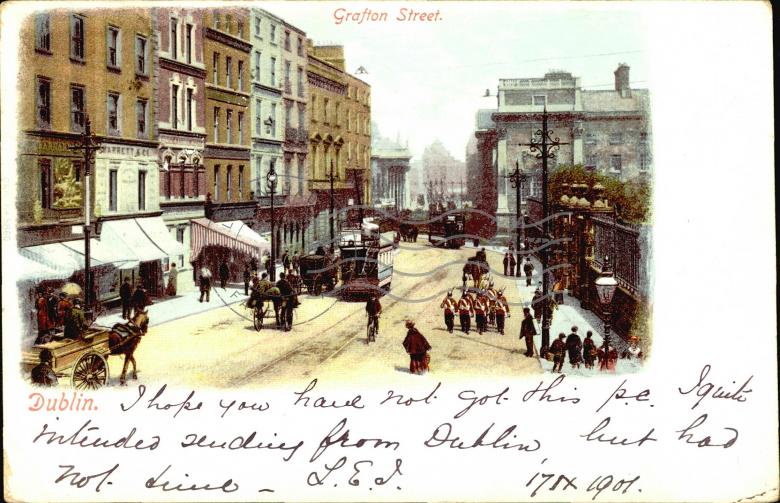 Dublin
Grafton Street.
BARNARD
Dublin. I hope you have not got this p.c. I quite
intended sending from Dublin but had
not time — L.E.J.
1901.